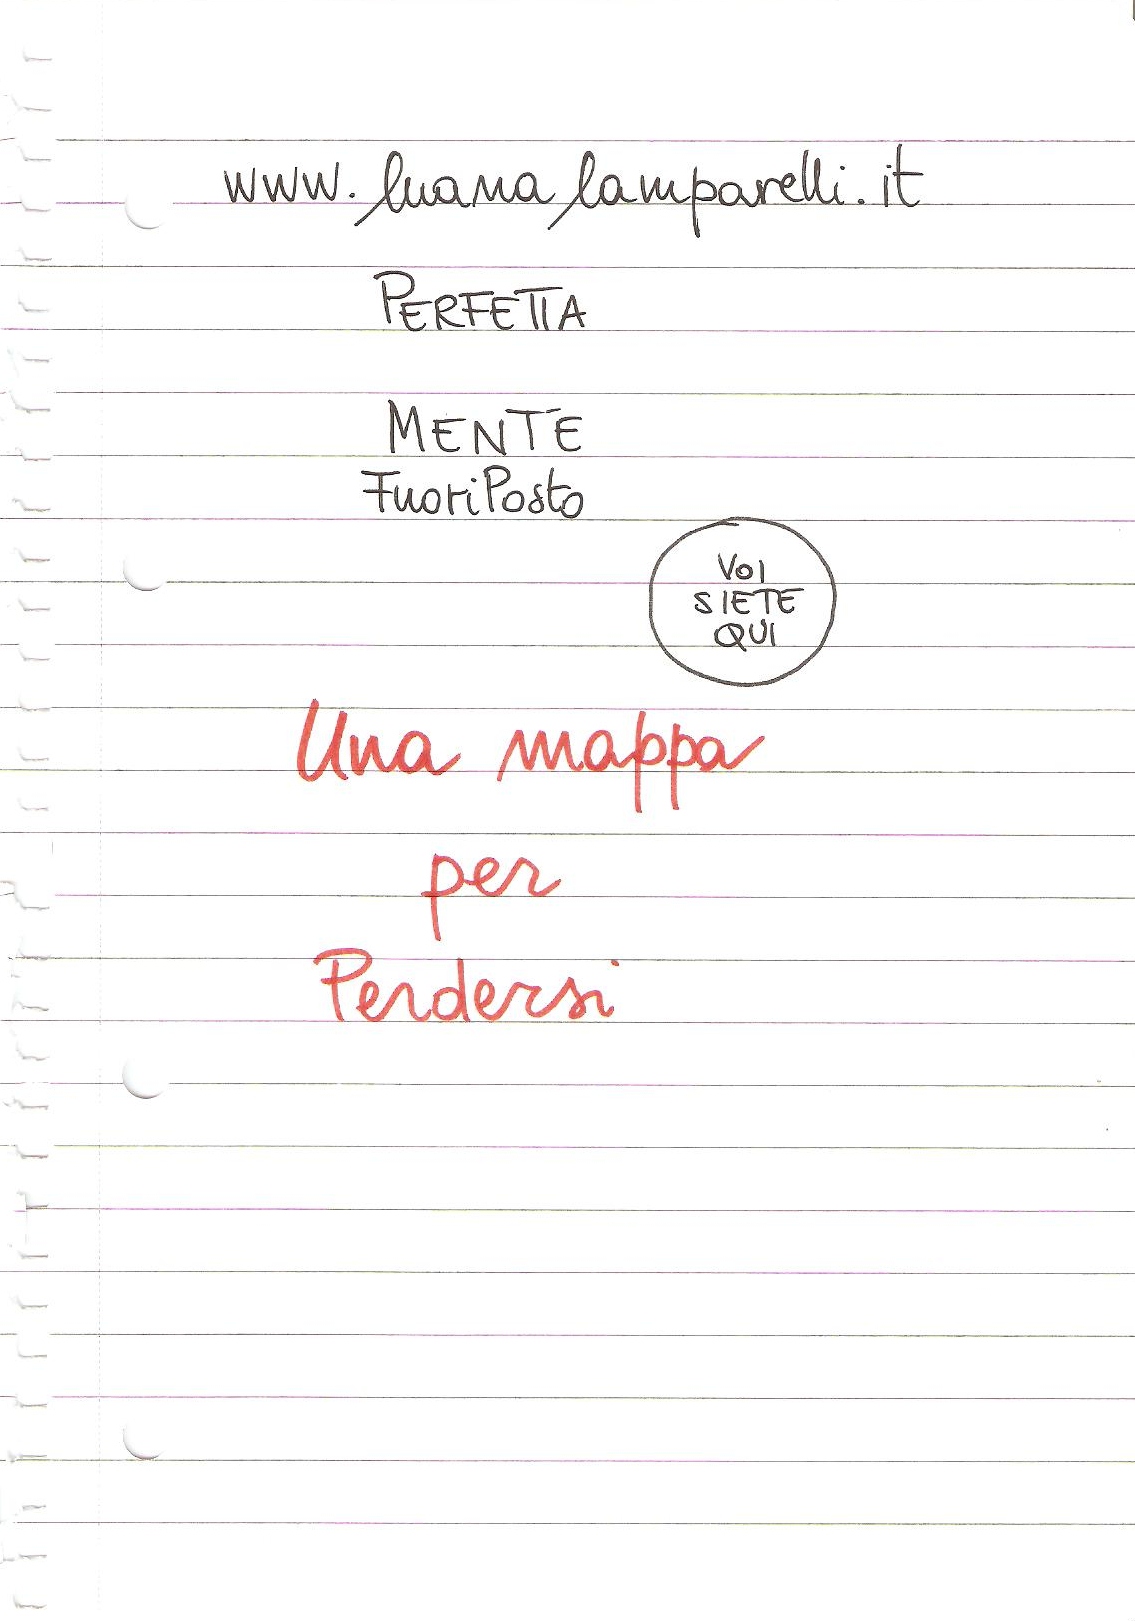 www.luanalamparelli.it
PERFETTA
MENTE
FuoriPosto
VOI
SIETE
QUI
Una mappa
per
Perdersi